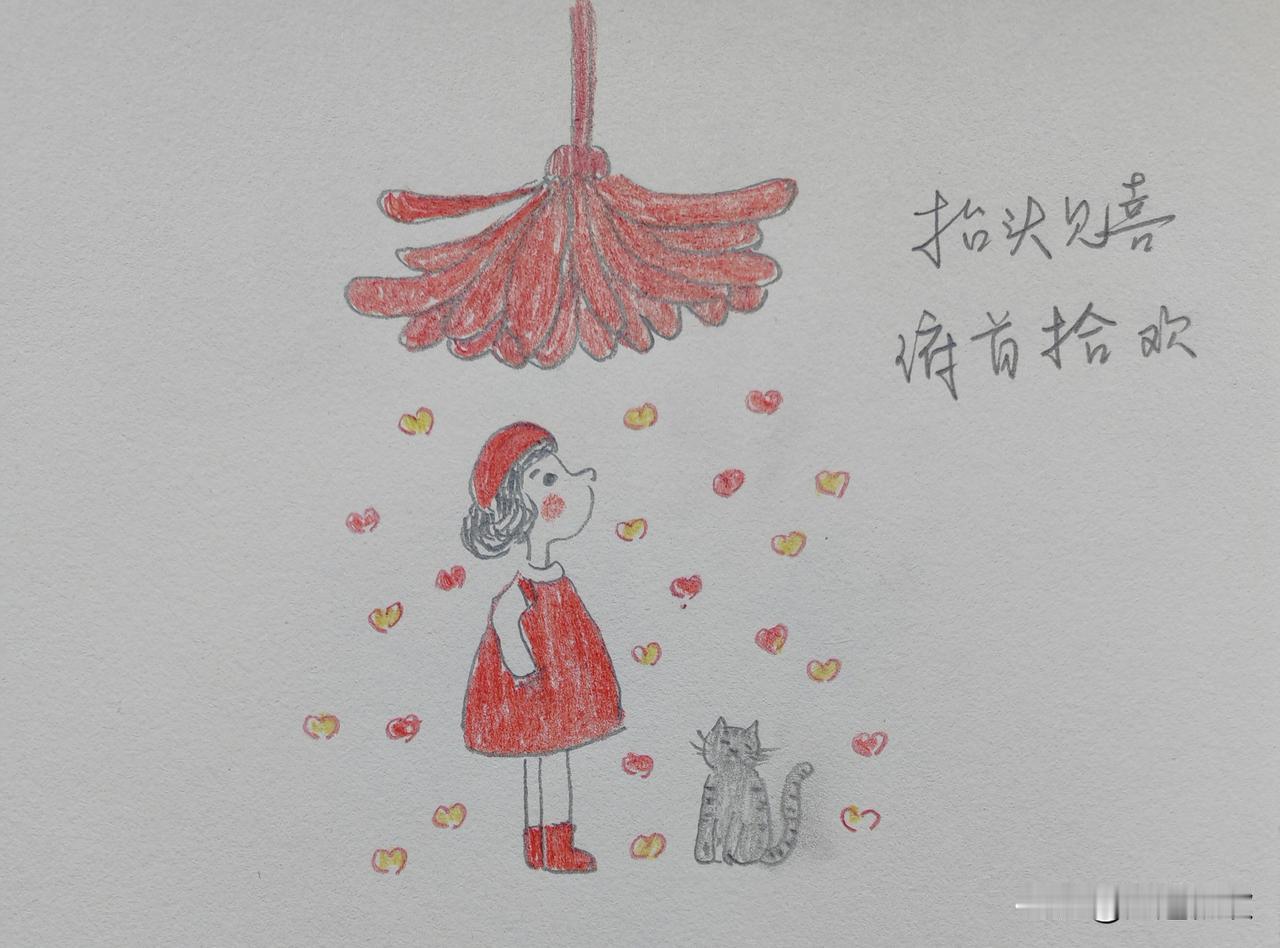 抬头见喜
俯首拾欢